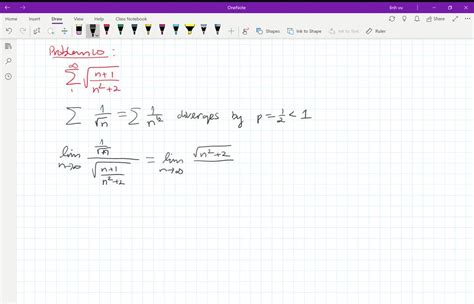 OneNote
linh vu
File Home Insert Draw View Help Class Notebook
Shapes Ink to Shape Ink to Text Ink to Math
Problem 20:
∞ ∑ 1 √((n+1)/(n²+2))
∑ 1/√n = ∑ 1/n^(1/2) diverges by p = 1/2 < 1
lim n→∞ (1/√n)/(√((n+1)/(n²+2))) = lim n→∞ √(n²+2)